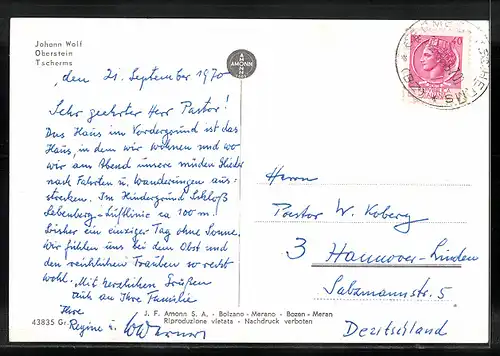 Johann Wolf
Oberstein
Tscherms
AMONN
den 21. September 1970
Sehr geehrter Herr Pastor!
Das Haus im Vordergrund ist das
Haus, in dem wir wohnen und wo
wir am Abend unsere müden Glieder
nach Fahrten u. Wanderungen aus-
strecken. Im Hintergrund Schloß
Lebenberg - Luftlinie ca 100 m.
Bisher ein einziger Tag ohne Sonne.
Wir fühlen uns bei dem Obst und
den reichlichen Trauben so recht
wohl. Mit herzlichen Grüßen
auch an Ihre Familie
Ihre
Regine u.
43835 Gr.
J. F. Amonn S. A. - Bolzano - Merano - Bozen - Meran
Riproduzione vietata - Nachdruck verboten
40
Herrn
Pastor W. Koberg
3 Hannover-Linden
Salzmannstr. 5
Deutschland